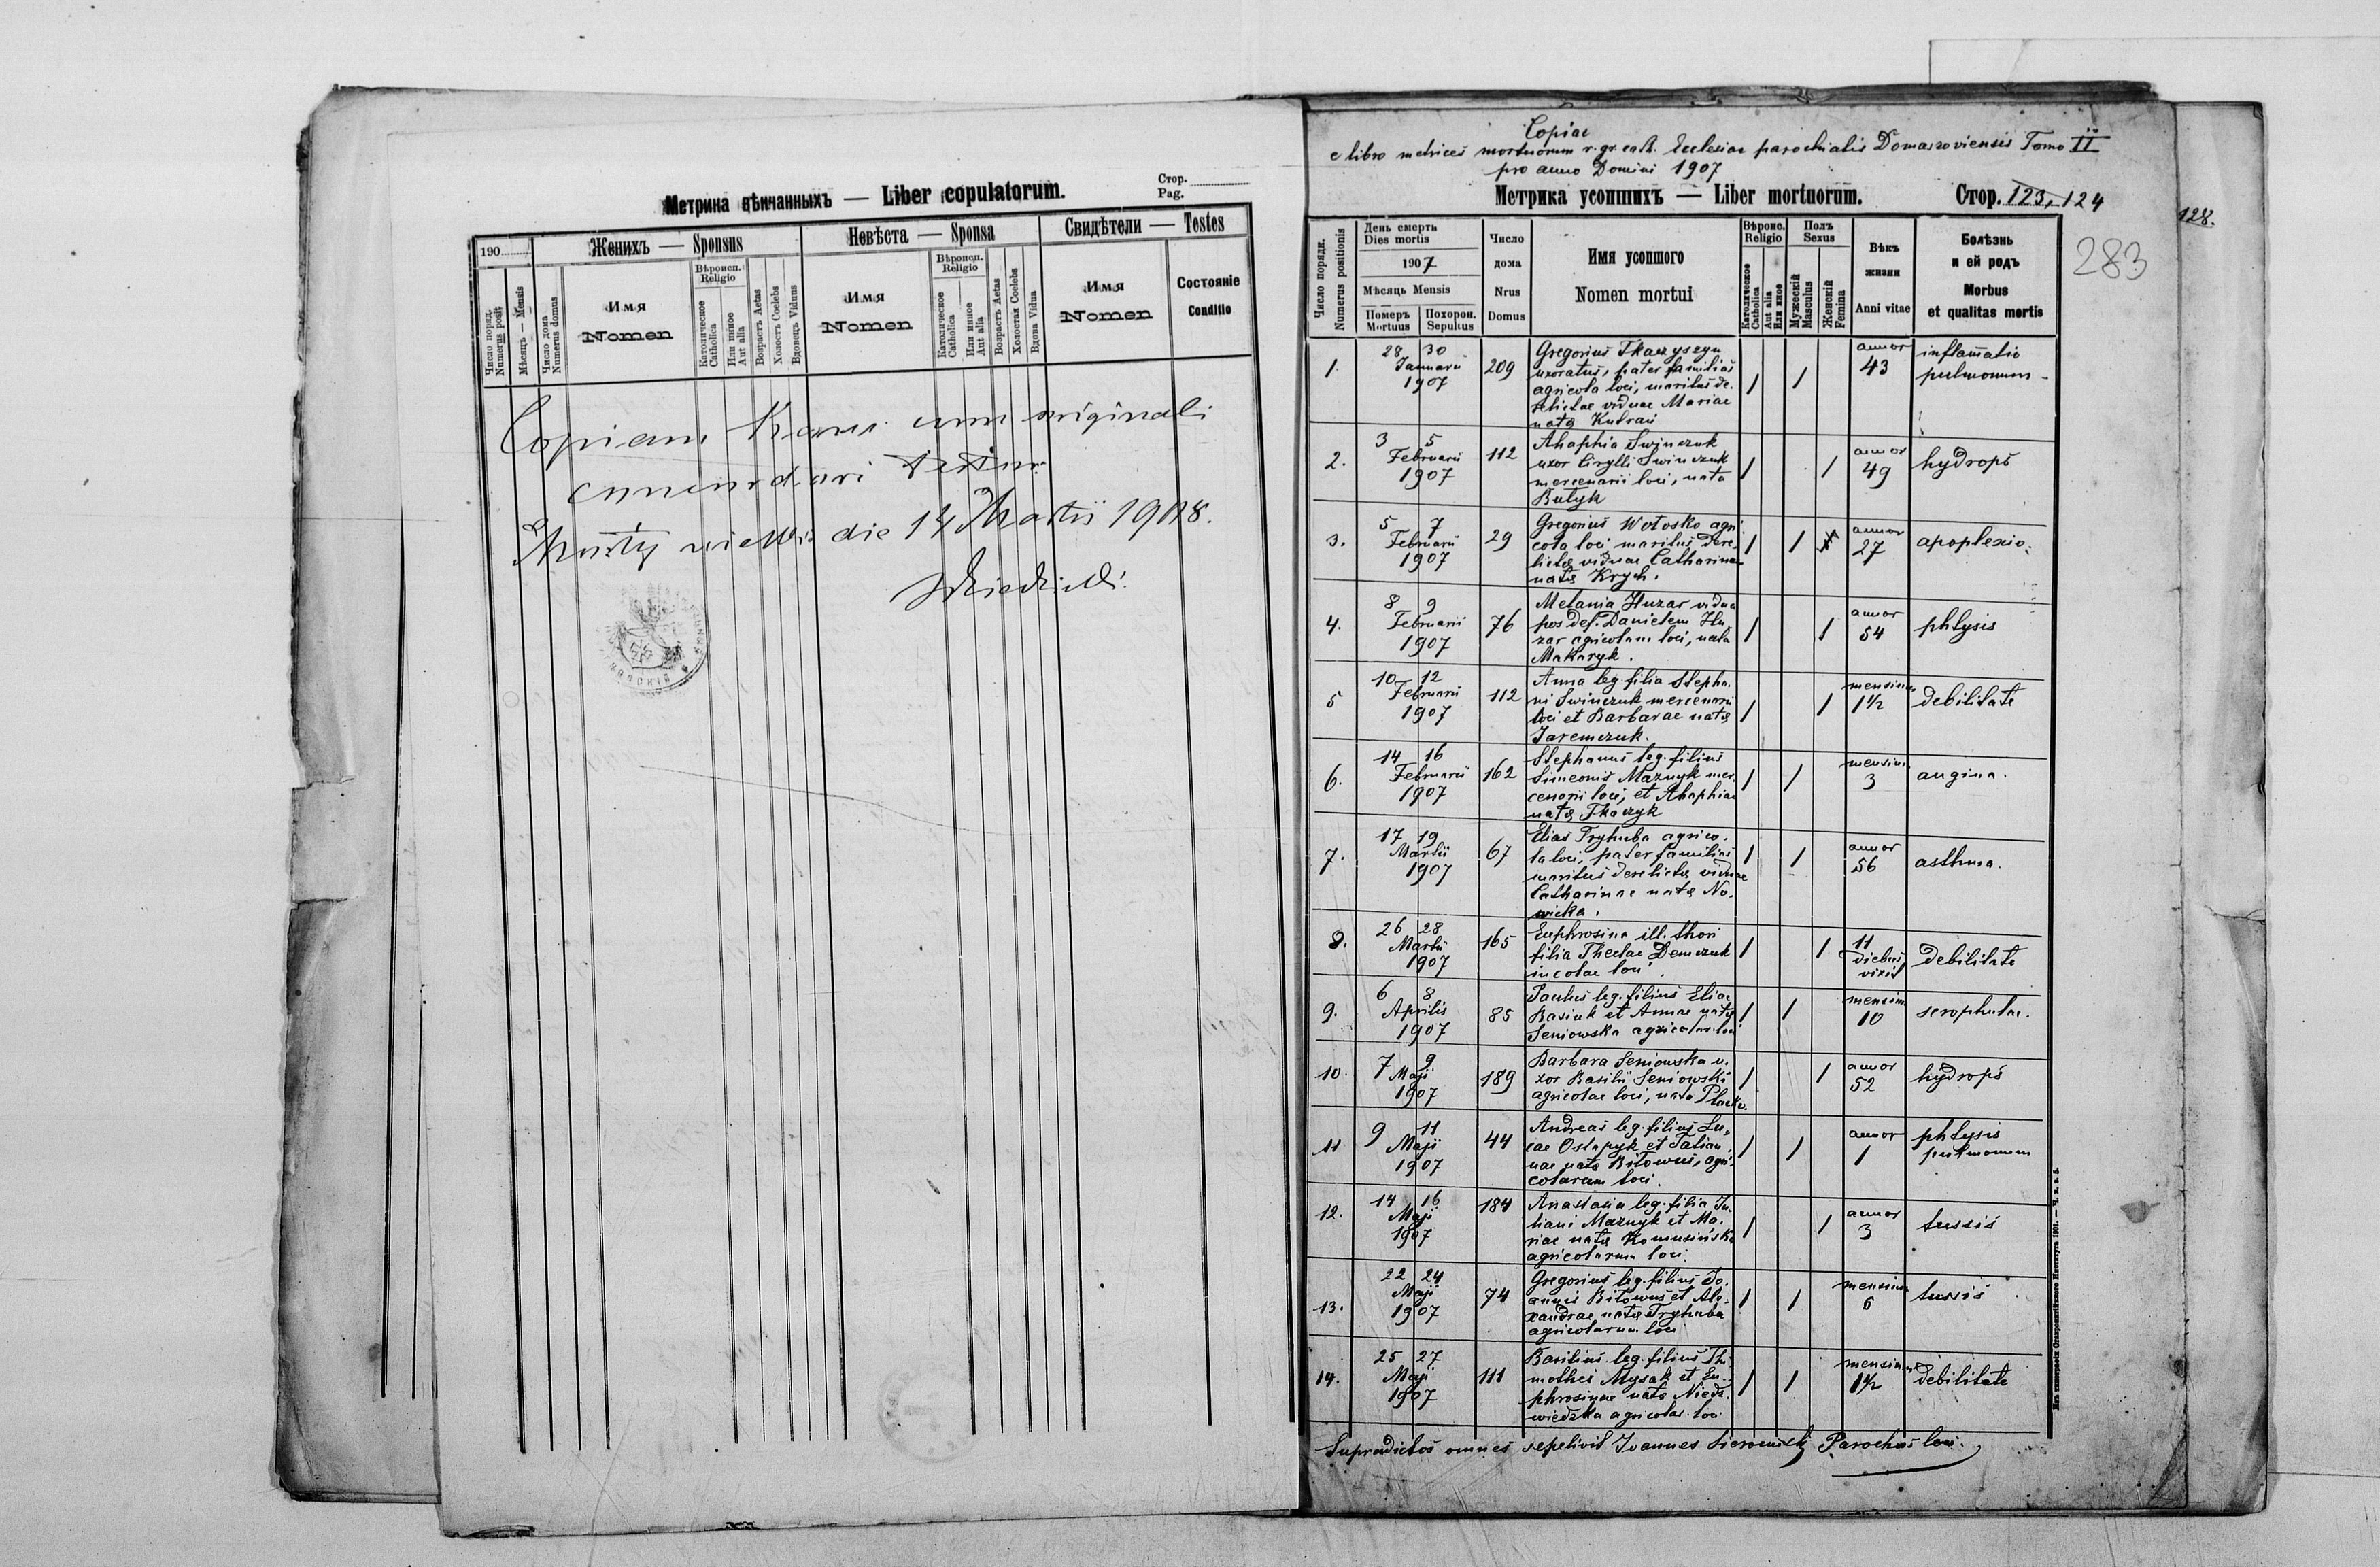 Метрика вѣнчанныхъ — Liber copulatorum.
Стор.
Pag.
190
Женихъ — Sponsus
Невѣста — Sponsa
Свидѣтели — Testes
Число поряд.
Numerus posit
Мѣсяць — Mensis
Число дома
Numerus domus
Имя
Nomen
Вѣроисп.
Religio
Католическое
Catholica
Или инное
Aut alia
Возрастъ Aetas
Холостъ Coelebs
Вдовецъ Viduus
Имя
Nomen
Вѣроисп.
Religio
Католическое
Catholica
Или инное
Aut alia
Возрастъ Aetas
Холостая Coelebs
Вдова Vidua
Имя
Nomen
Состояніе
Conditio
Copiam cum originali
die 14 Martii 1908.
Copiae
e libro metrices mortuorum r. gr. cath. Ecclesiae parochialis Domaszoviensis Tomo II
pro anno Domini 1907
Метрика усопшихъ — Liber mortuorum.
Стор. 123, 124
128.
283
Число порядк.
Numerus positionis
День смерть
Dies mortis
1907
Мѣсяць Mensis
Померъ
Mortuus
Похорон.
Sepultus
Число
дома
Nrus
Domus
Имя усопшого
Nomen mortui
Вѣроис.
Religio
Католическое
Catholica
Aut alia
Или иное
Полъ
Sexus
Мужескій
Masculus
Женскій
Femina
Вѣкъ
жизни
Anni vitae
Болѣзнь
и ей родъ
Morbus
et qualitas mortis
1. 28 30 Januarii 1907 209
Gregorius Tkaczyszyn
uxoratus, pater familias
agricola loci, maritus de-
relictae viduae Mariae
natę
annor 43 inflamatio
pulmonum
2. 3 5 Februarii 1907 112
Ahaphia Swinczuk
uxor Cirylli Swinczuk
mercenarii loci, nata
Butyk
annor 49 hydrops
3. 5 7 Februarii 1907 29
Gregorius Wołosko agri-
cola loci maritus dere-
lictę viduae Catharinae
natę Krych.
annor 27 apoplexio.
4. 8 9 Februarii 1907 76
Melania Huzar vidua
pos def. Danielem Hu-
zar agricolam loci, nata
Makaryk.
annor 54 phtysis
5 10 12 Februarii 1907 112
Anna leg. filia Stepha-
ni Swinczuk mercenarii
loci et Barbarae natę
Jaremczuk.
mensium 1½ debilitate
6. 14 16 Februarii 1907 162
Stephanus leg. filius
Simeonis Maznyk mer-
cenarii loci, et Ahaphiae
natę Tkaczyk
mensium 3 angina.
7. 17 19 Martii 1907 67
Elias Tryhuba agrico-
la loci, pater familias
maritus derelictę viduae
Catharinae natę No-
wicka.
annor 56 asthma.
8. 26 28 Martii 1907 165
Euphrosina ill. thori
filia Theclae Demczuk
incolae loci.
11 diebus
vixit debilitate
9. 6 8 Aprilis 1907 85
Paulus leg. filius Eliae
Basiuk et Annae natę
Seniowska agricolar. loci
mensium 10 scrophulae.
10. 7 9 Maji 1907 189
Barbara Seniowska u-
xor Basilii Seniowski
agricolae loci, nata
annor 52 hydrops
11 9 11 Maji 1907 44
Andreas leg. filius Lu-
cae Ostapyk et Tatian-
nae natę Biłowus, agri-
colarum loci.
annor 1 phtysis
pulmonum
12. 14 16 Maji 1907 184
Anastasia leg. filia Ju-
liani Maznyk et Ma-
riae natę
agricolarum loci
annor 3 tussis
13. 22 24 Maji 1907 74
Gregorius leg. filius Jo-
annis Biłowus et Ale-
xandrae natę Tryhuba
agricolarum loci
mensium 6 tussis
14. 25 27 Maji 1907 111
Basilius leg. filius Thi-
mothei Mysak et Eu-
phrosinae natę Niedz-
wiedzka agricolar. loci
mensium 1½ debilitate
Supradictos omnes sepelivit Joannes Parochus loci.